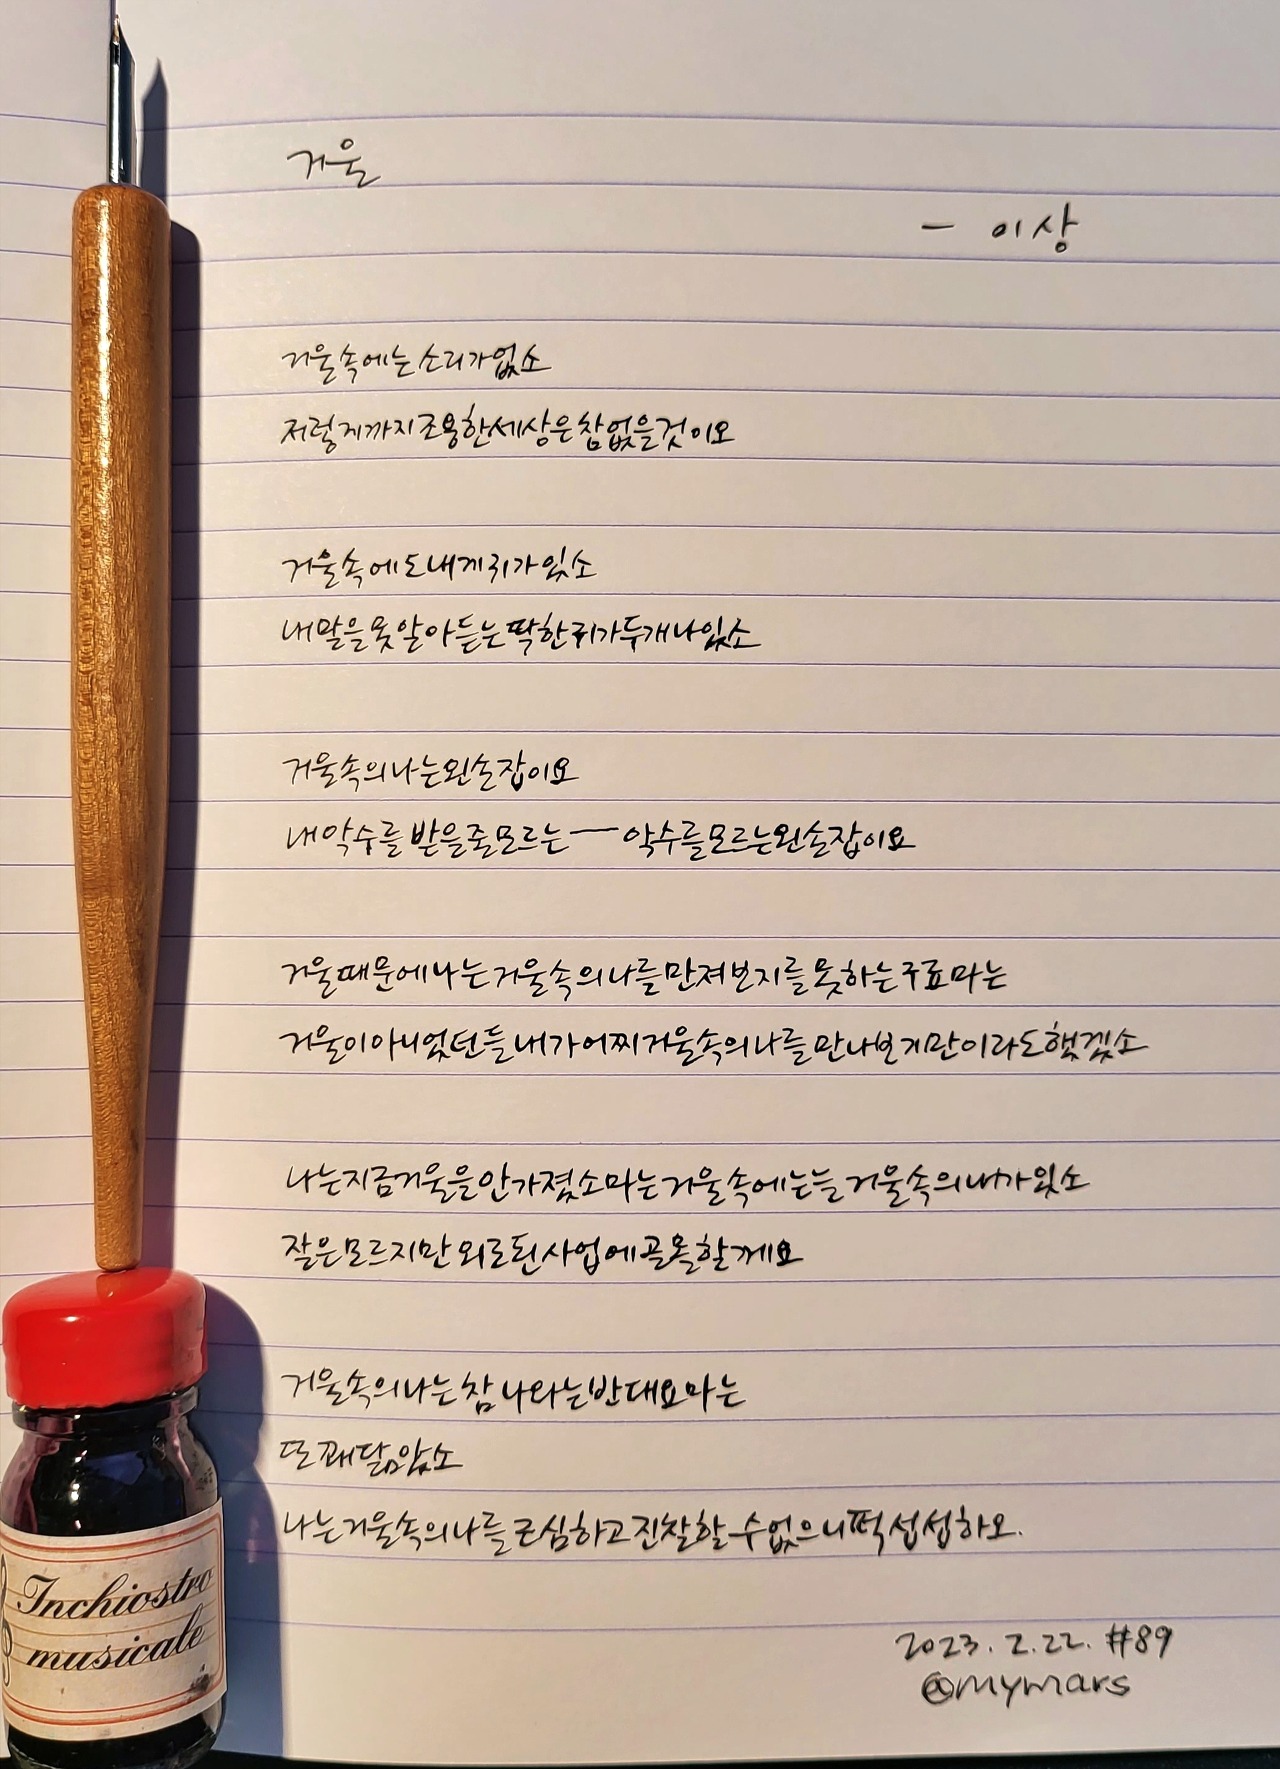 거울
- 이상
거울속에는소리가없소
저렇게까지조용한세상은참없을것이오
거울속에도내게귀가있소
내말을못알아듣는딱한귀가두개나있소
거울속의나는왼손잡이오
내악수를받을줄모르는──악수를모르는왼손잡이요
거울때문에나는거울속의나를만져보지를못하는구료마는
거울이아니었던들내가어찌거울속의나를만나보기만이라도했겠소
나는지금거울을안가졌소마는거울속에는늘거울속의내가있소
잘은모르지만외로된사업에골몰할께요
거울속의나는참나와는반대요마는
또꽤닮았소
나는거울속의나를근심하고진찰할수없으니퍽섭섭하오.
2023. 2. 22. #89
@mymars
Inchiostro
musicale